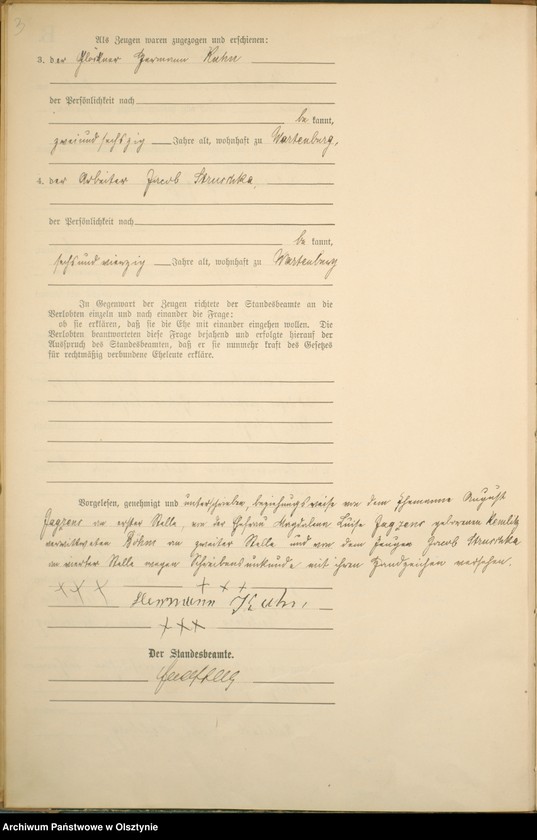 3
Als Zeugen waren zugezogen und erschienen:
3. der Glöckner Hermann Kuhn
der Persönlichkeit nach
be kannt,
zweiundsechszig Jahre alt, wohnhaft zu Wartenburg,
4. der Arbeiter Jacob Struschka,
der Persönlichkeit nach
be kannt,
sechsundvierzig Jahre alt, wohnhaft zu Wartenburg
In Gegenwart der Zeugen richtete der Standesbeamte an die
Verlobten einzeln und nach einander die Frage:
ob sie erklären, daß sie die Ehe mit einander eingehen wollen. Die
Verlobten beantworteten diese Frage bejahend und erfolgte hierauf der
Ausspruch des Standesbeamten, daß er sie nunmehr kraft des Gesetzes
für rechtmäßig verbundene Eheleute erkläre.
Vorgelesen, genehmigt und unterschrieben, beziehungsweise von dem Ehemanne August
an erster Stelle, von der Ehefrau Magdalena Luise geborenen
verwittweten Böhm an zweiter Stelle und von dem Zeugen Jacob Struschka
an vierter Stelle wegen Schreibensunkunde mit ihren Handzeichen versehen.
+++ +++
Hermann Kuhn.
+++
Der Standesbeamte.
Archiwum Państwowe w Olsztynie